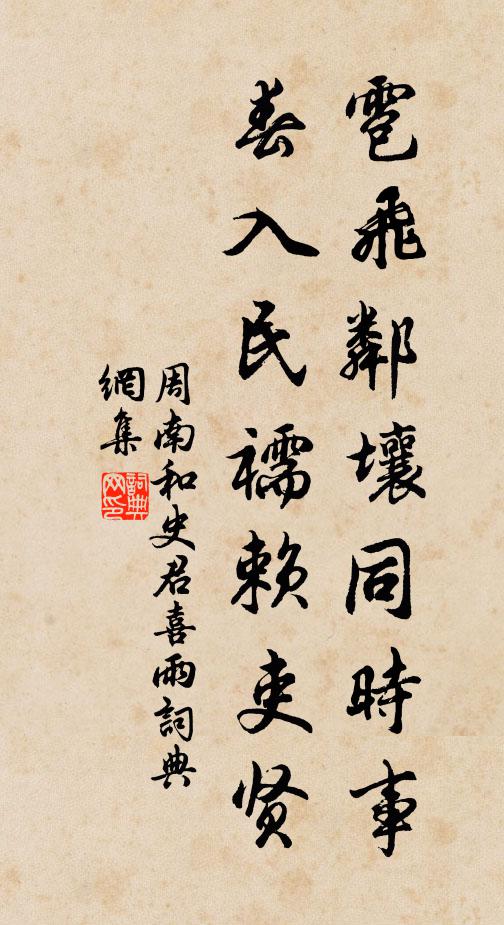 雹飛鄰壤同時事
春入民襦賴吏贤
周南和史君喜雨詞典
網集
詞典
网印